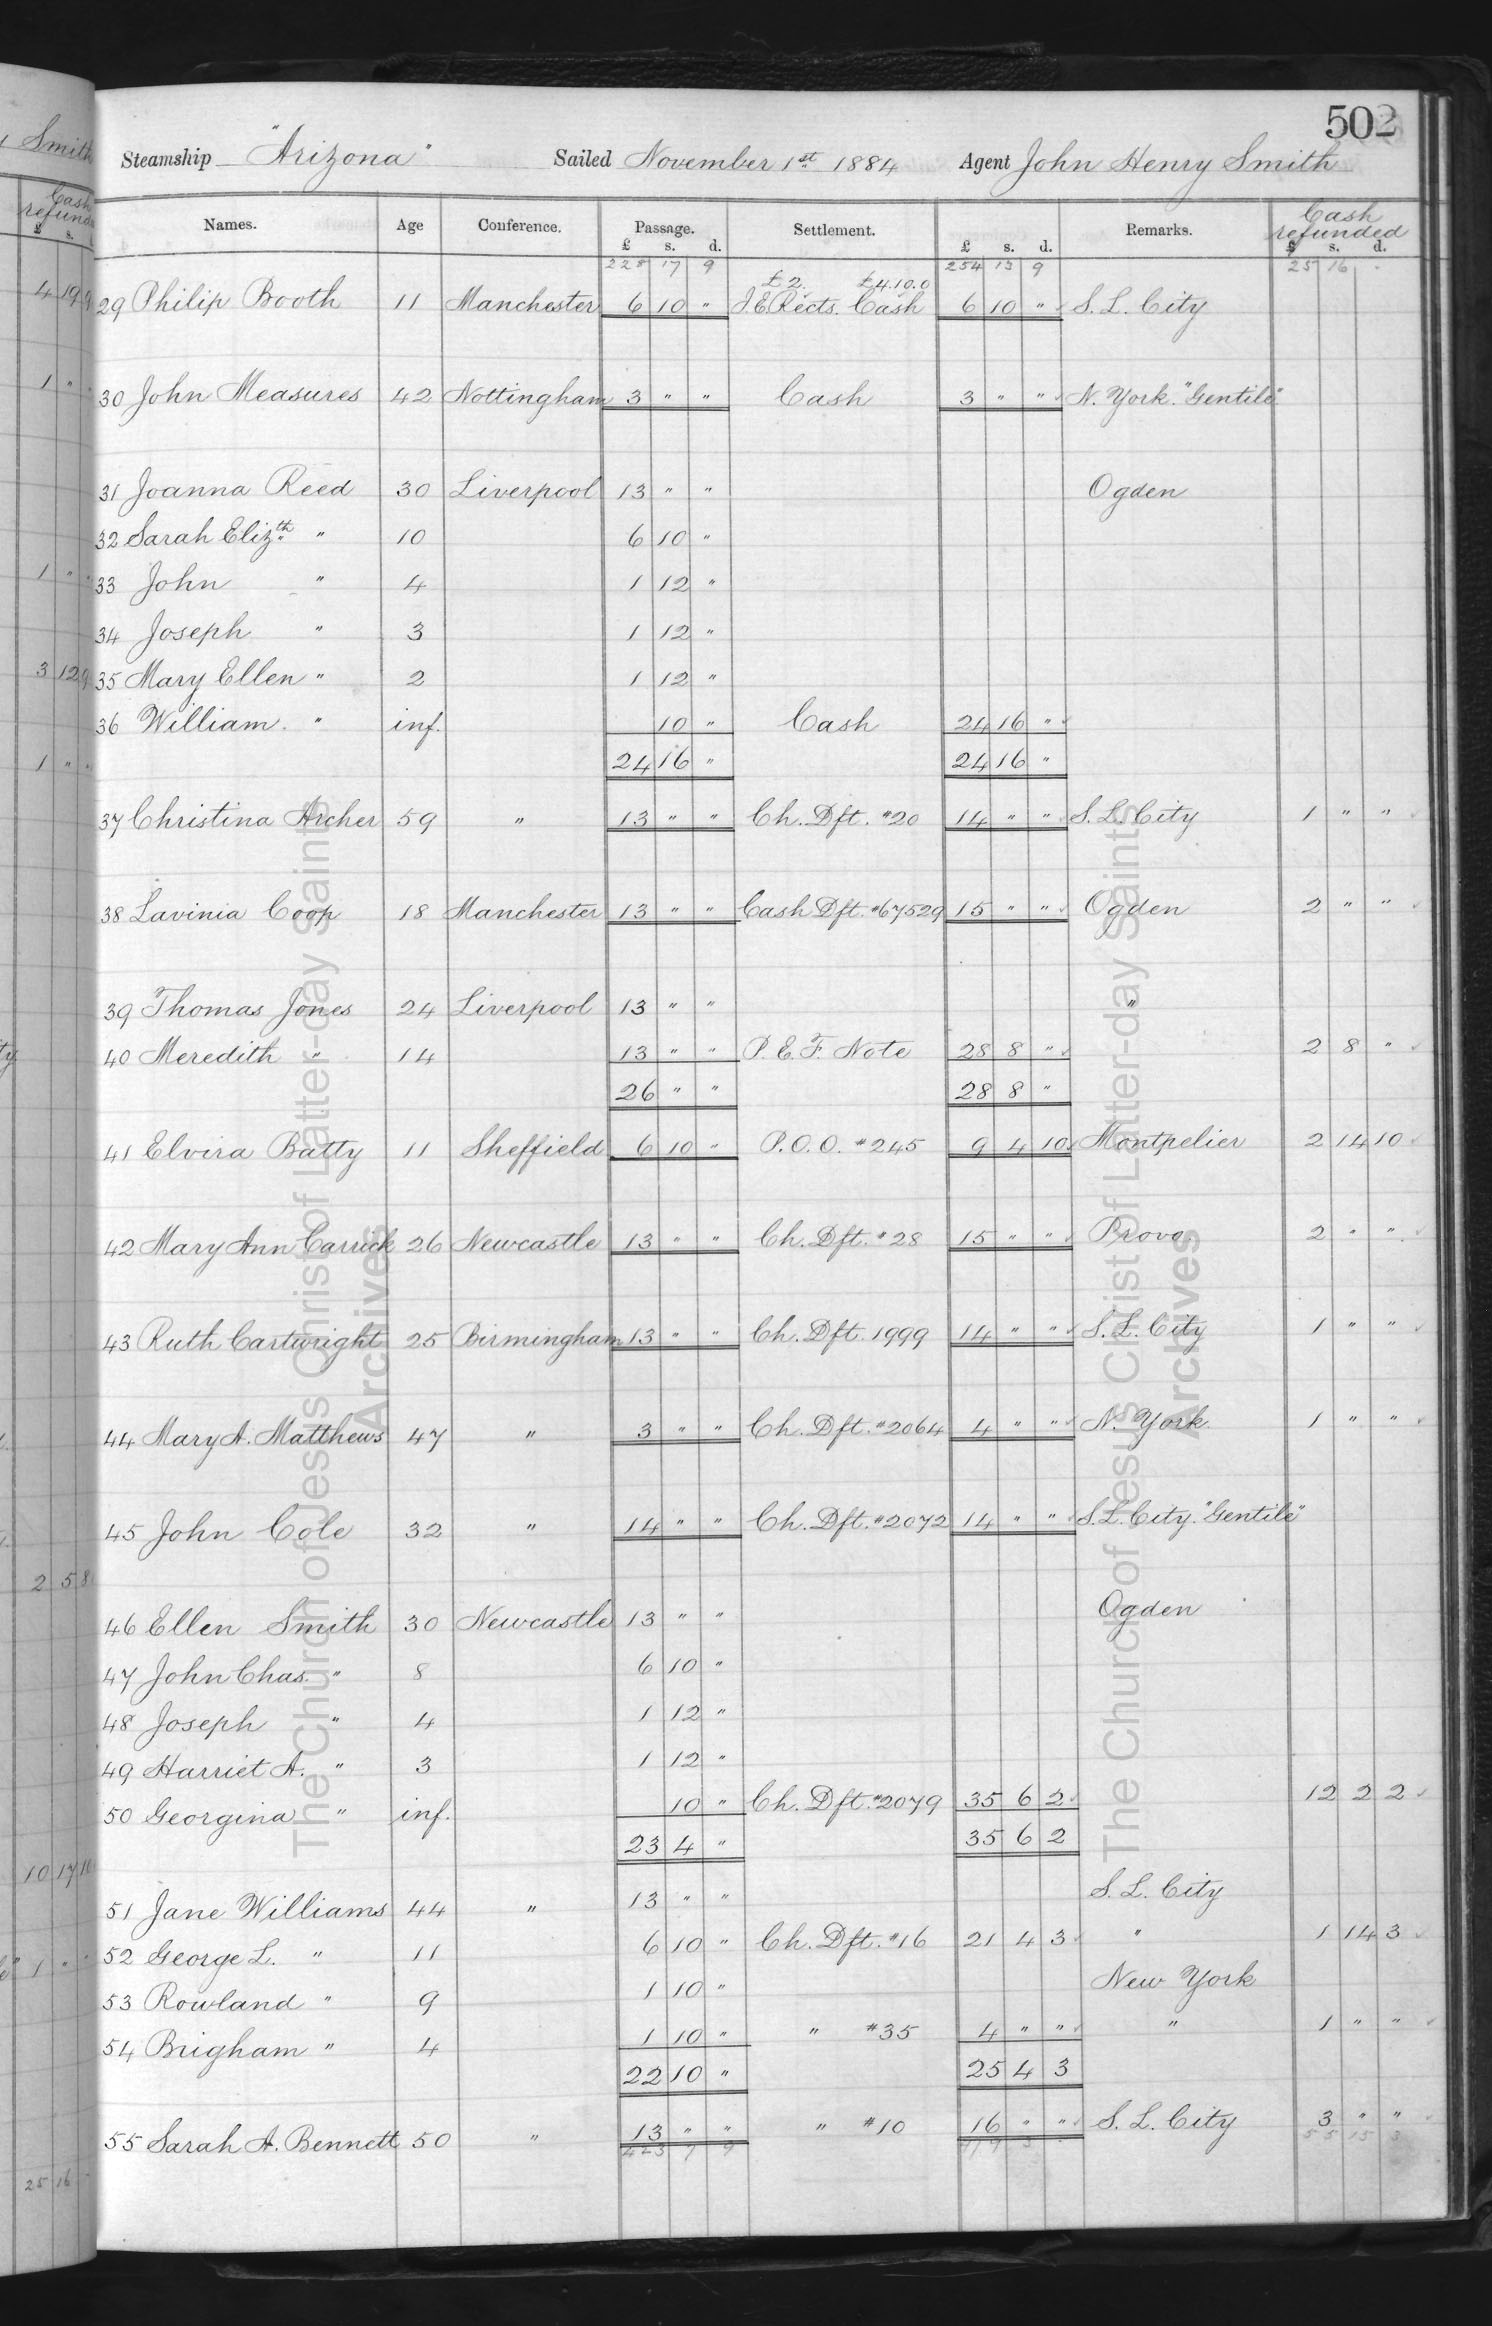 502
Steamship "Arizona" Sailed November 1st 1884 Agent John Henry Smith
Names. Age Conference. Passage. Settlement. Remarks. Cash refunded
£ s. d. £ s. d. £ s. d.
228 17 9 254 13 9 25 16 "
£2. £4.10.0
29 Philip Booth 11 Manchester 6 10 " I.E.Rects. Cash 6 10 " S. L. City
30 John Measures 42 Nottingham 3 " " Cash 3 " " N. York. "Gentile"
31 Joanna Reed 30 Liverpool 13 " " Ogden
32 Sarah Elizth " 10 6 10 "
33 John " 4 1 12 "
34 Joseph " 3 1 12 "
35 Mary Ellen " 2 1 12 "
36 William. " inf. 10 " Cash 24 16 "
24 16 " 24 16 "
37 Christina Archer 59 " 13 " " Ch. Dft. #20 14 " " S. L. City 1 " "
38 Lavinia Coop 18 Manchester 13 " " Cash Dft. #67529 15 " " Ogden 2 " "
39 Thomas Jones 24 Liverpool 13 " " "
40 Meredith " 14 13 " " P. E. F. Note 28 8 " 2 8 "
26 " " 28 8 "
41 Elvira Batty 11 Sheffield 6 10 " P.O.O. #245 9 4 10 Montpelier 2 14 10
42 Mary Ann Carrick 26 Newcastle 13 " " Ch. Dft. #28 15 " " Provo. 2 " "
43 Ruth Cartwright 25 Birmingham 13 " " Ch. Dft. 1999 14 " " S. L. City 1 " "
44 Mary A. Matthews 47 " 3 " " Ch. Dft. #2064 4 " " N. York. 1 " "
45 John Cole 32 " 14 " " Ch. Dft. #2072 14 " " S. L. City. "Gentile"
46 Ellen Smith 30 Newcastle 13 " " Ogden
47 John Chas. " 8 6 10 "
48 Joseph " 4 1 12 "
49 Harriet A. " 3 1 12 "
50 Georgina " inf. 10 " Ch. Dft. #2079 35 6 2 12 2 2
23 4 " 35 6 2
51 Jane Williams 44 " 13 " " S. L. City
52 George L. " 11 6 10 " Ch. Dft. #16 21 4 3 " 1 14 3
53 Rowland " 9 1 10 " New York
54 Brigham " 4 1 10 " " #35 4 " " " 1 " "
22 10 " 25 4 3
55 Sarah A. Bennett 50 " 13 " " " #10 16 " " S. L. City 3 " "
423 7 9 479 3 55 15 3
The Church of Jesus Christ of Latter-day Saints
Archives
The Church of Jesus Christ of Latter-day Saints
Archives
Smith
Cash
refunded
£ s.
4 19 9
1 " "
1 " "
3 12 9
1 " "
2 5 8
10 17 10
1 "
25 16